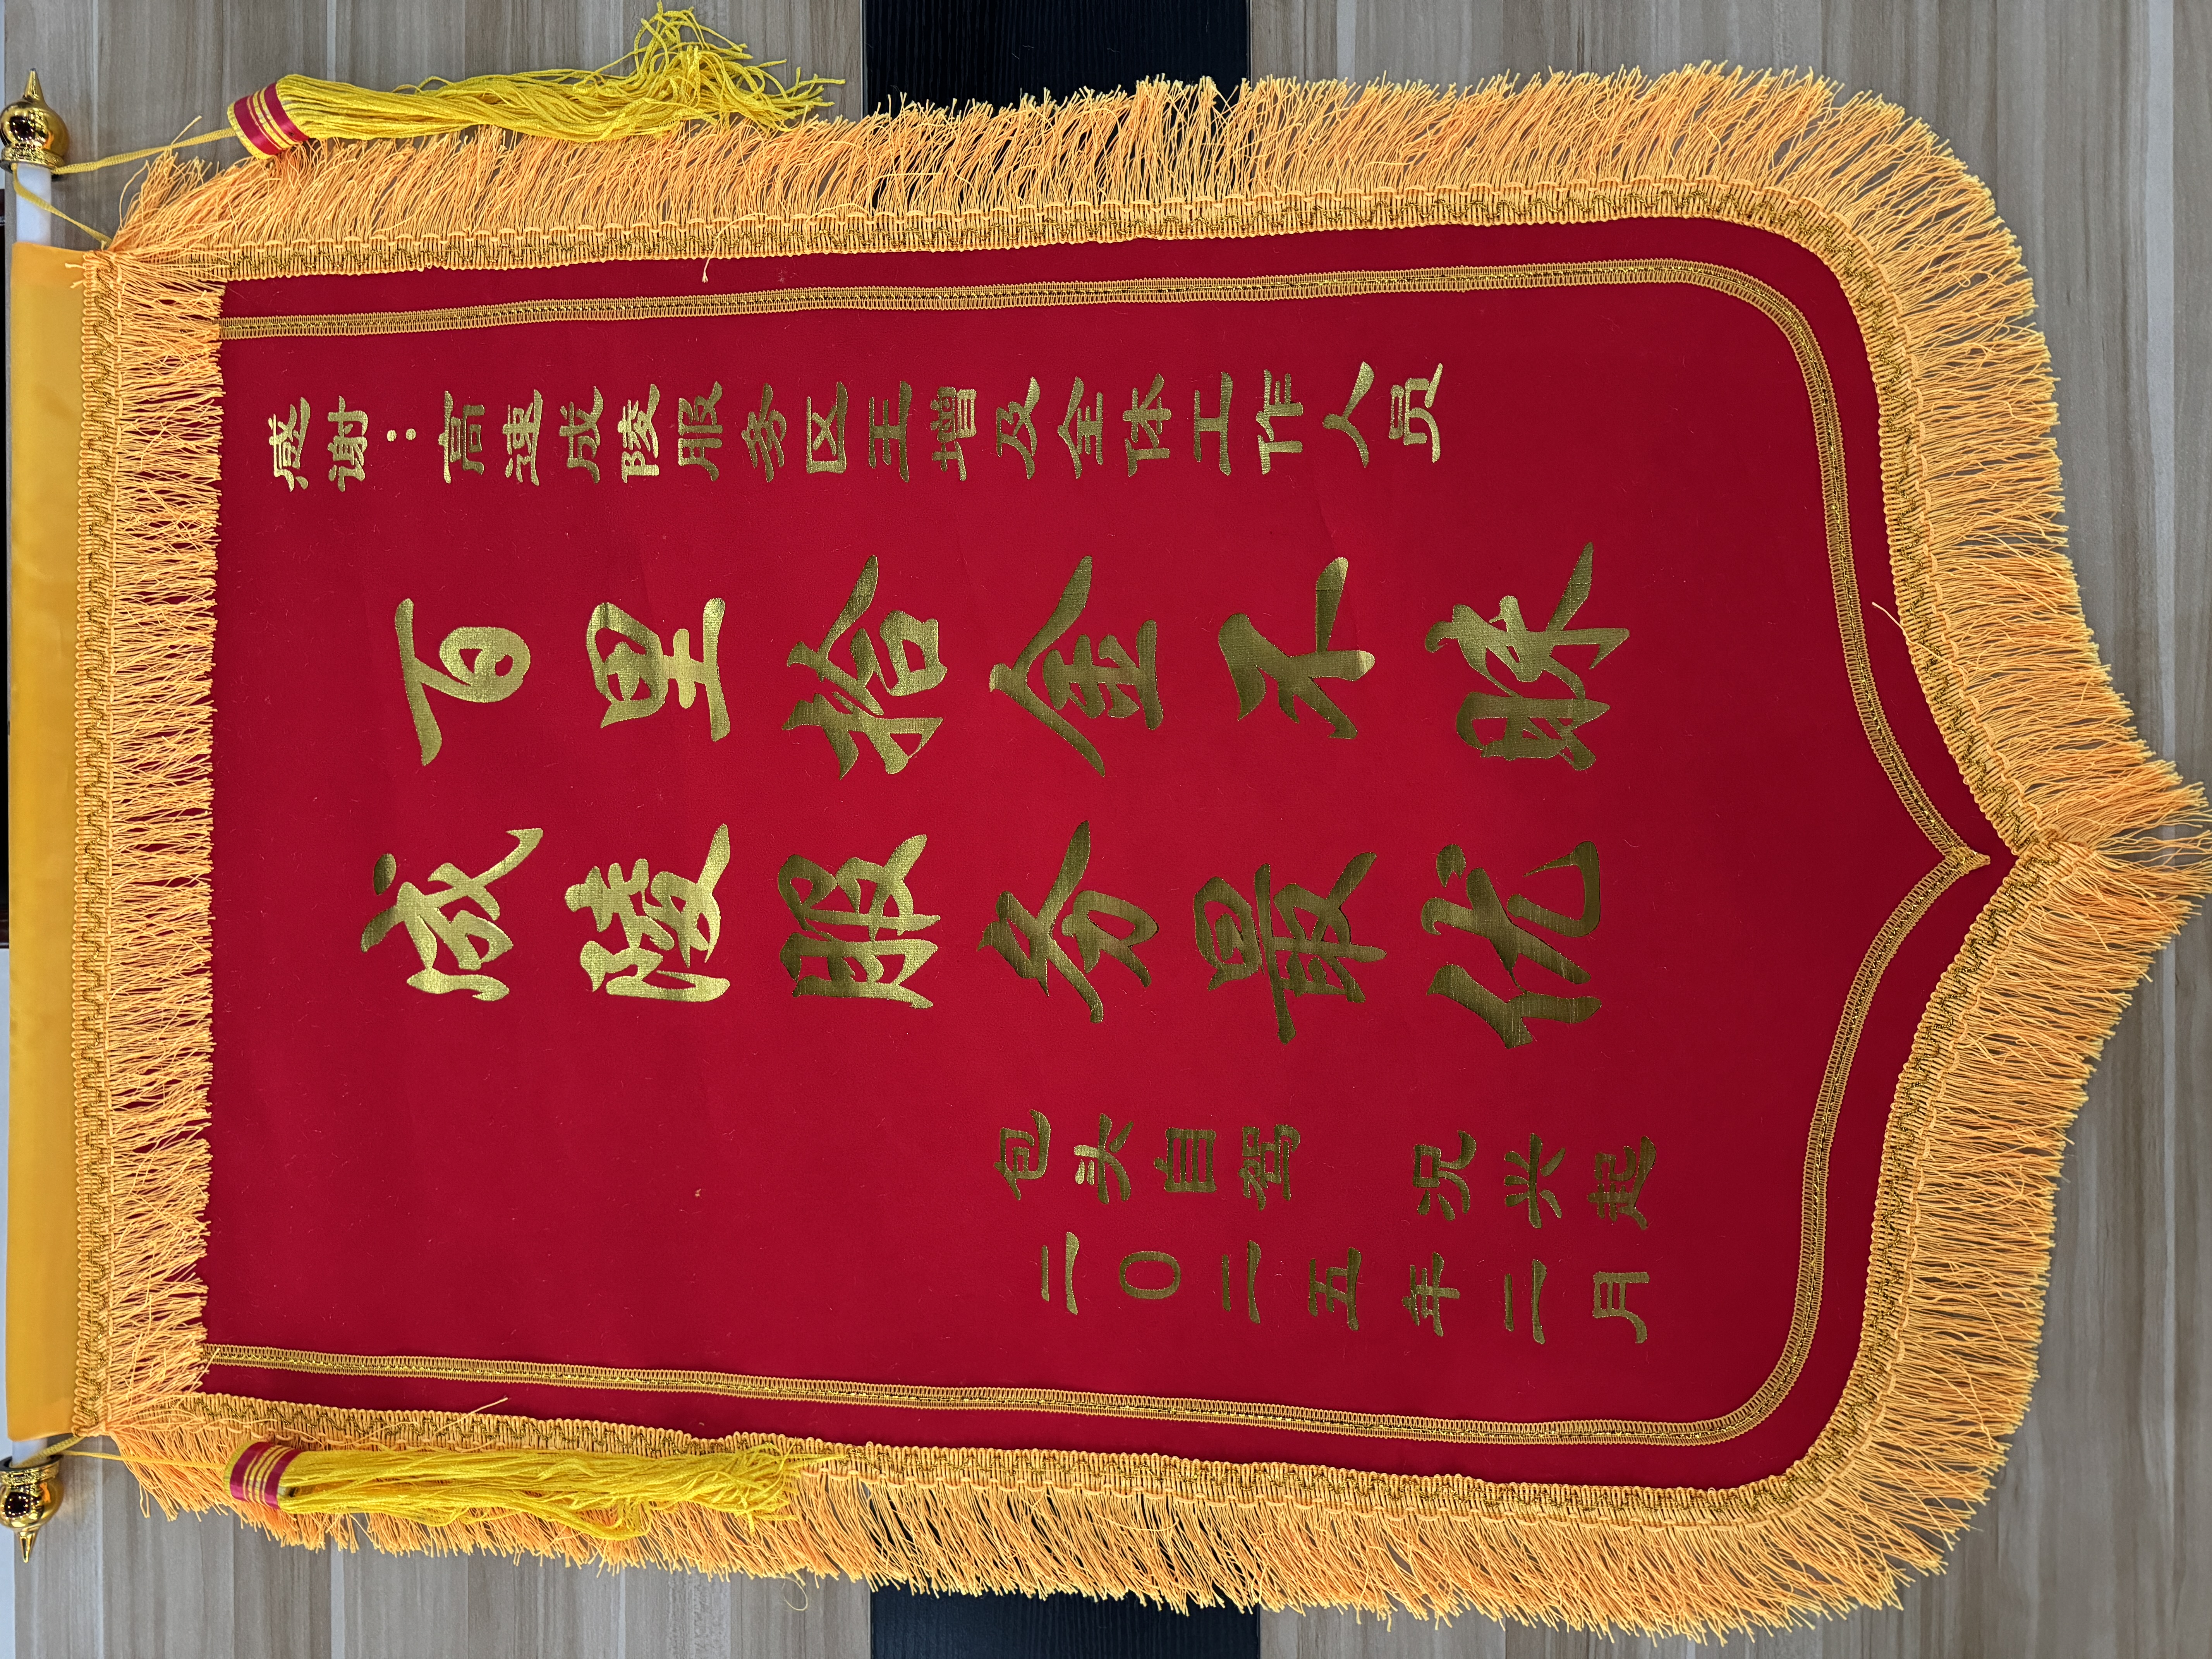 感谢：高速成陵服务区王增及全体工作人员
百里拾金不昧
成陵服务最优
包头自驾 况兴起
二〇二五年二月